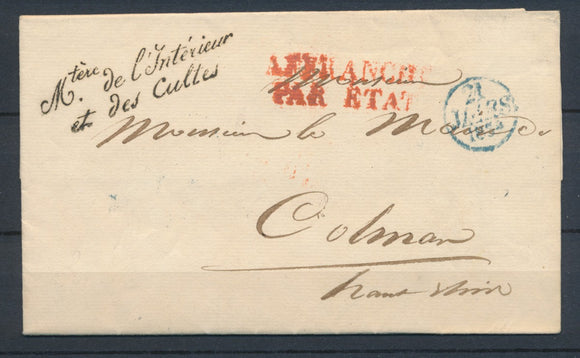 Mtère de l'Intérieur
et des Cultes
AFFRANCHI
PAR ETAT
Monsieur
21
MARS
Monsieur le Maire de
Colmar
haut Rhin